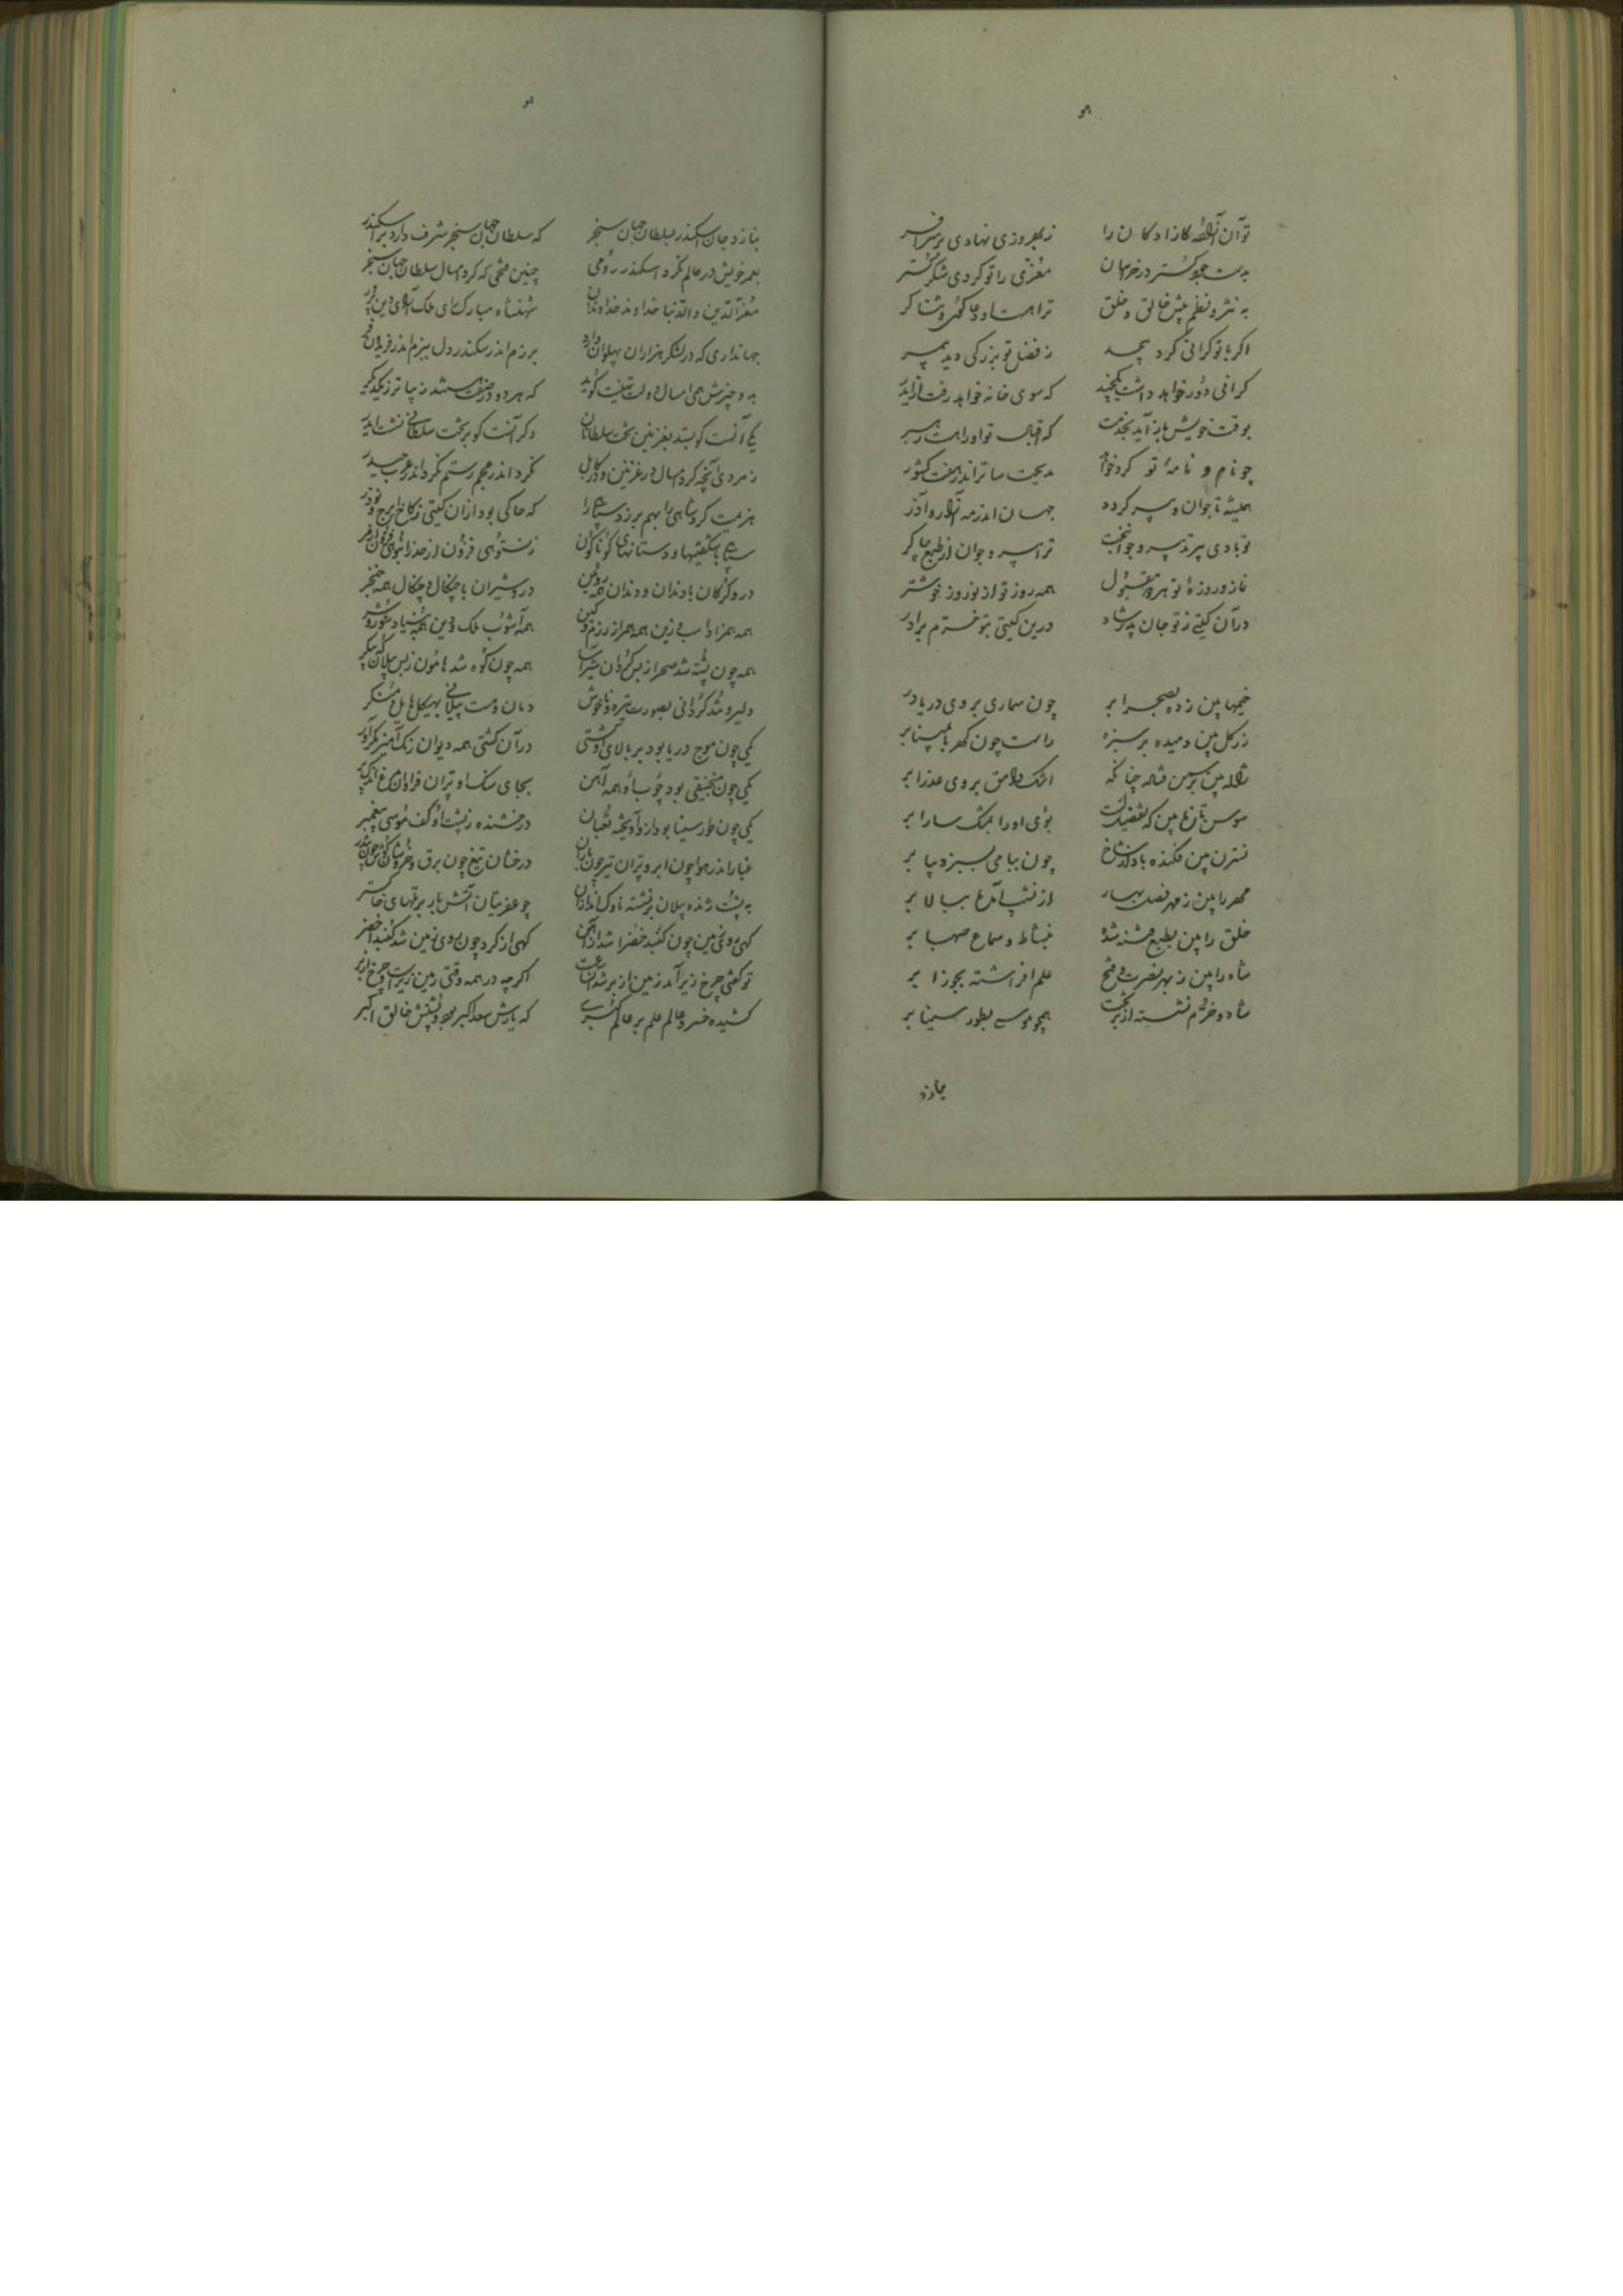 تو آن آزاده کازادکان را	زبهروزی نهادی بر سر افسر
بدست جود گستر در خراسان	معزی را تو کردی شکر گستر
به نثر و نظم پیش خالق و خلق	ترا هست او دعا گوی و ثنا گر
اگر با تو گرانی کرد بیحد	ز فضل تو بزرگی دید بیمر
گرانی دور خواهد داشت یکچند	که سوی خانه خواهد رفت از ایدر
بوقت خویش باز آید بخدمت	که اقبال تو او را هست رهبر
چو نام و نامهٔ تو کرد خواهد	مدیحت سایر اندر هفت کشور
همیشه تا جوان و پیر گردد	جهان اندر مه آزار و آذر
تو بادی پیر تدبیر و جوانبخت	ترا پیر و جوان از طبع چاکر
نماز و روزهٔ تو هر دو مقبول	همه روز تو از نوروز خوشتر
در آن گیتی ز تو جان پدر شاد	درین گیتی بتو خرم برادر
خیمها بین زده بصحرا بر	چون سماری بروی دریا بر
زر گل بین دمیده بر سبزه	راست چون کهربا بمینا بر
ژاله بین بر سمن فتاده چنانکه	اشک وامق بروی عذرا بر
سوسن تازه بین که تفضیلست	بوی او را بمشک سارا بر
نسترن بین فکنده باد از شاخ	چون پیامی بسبز دیبا بر
مهر را بین ز مهر فصل بهار	از نشیب آمده ببالا بر
خلق را بین بطبع فتنه شده	بنشاط و سماع صهبا بر
شاه را بین ز بهر نصرت و فتح	علم افراشته بجوزا بر
شاد و خرم نشسته از بر تخت	همچو موسی بطور سینا بر
بنازد
بنازد جان اسکندر بسلطان جهان سنجر	که سلطان جهان سنجر شرف دارد بر اسکندر
بعمر خویش در عالم نکرد اسکندر رومی	چنین فتحی که کرد امسال سلطان جهان سنجر
معز الدین و الدنیا خداوند خداوندان	شهنشاه مبارک رای ملک آرای دین پرور
جهانداری که در لشکر هزاران پهلوان دارد	برزم اندر سکندر دل ببزم اندر فریدون فر
بدو چیزش همی امسال دولت تهنیت گوید	که هر دو در صفت هستند زیباتر ز یکدیگر
یکی آنست کو بستد بغزنین تخت سلطانان	دگر آنست کو بر تخت سلطانی نشاند ایدر
ز مردی آنچه کرد امسال در غزنین و در کابل	نکرد اندر عجم رستم نکرد اندر عرب حیدر
هزیمت کرد شاهی را بهم بر زد سپاهی را	که حاکی بود از آن گیتی ز کاخ ایرج و نوذر
سپاهی با شگفتیها و دستانهای گوناگون	ز نستوهی فزون از حد ز انبوهی فزون از مر
درو گرگان با دندان و دندان همه زوبین	درو شیران با چنگال و چنگال همه خنجر
همه همزاد اسب و زین همه همراز رزم و کین	همه آشوب ملک و دین همه بنیاد شور و شر
همه چون پشته شد صحرا ز بس گردان شیر آسا	همه چون کوه شد هامون ز بس پیلان که پیکر
دلیر و تند گردانی بصورت تیره و ناخوش	دمان و مست پیلانی بهیکل هایل و منکر
یکی چون موج دریا بود بر بالای او کشتی	در آن کشتی همه دیوان رنگ آمیز مکر آور
یکی چون منجنیقی بود چوب او همه آهن	بجای سنگ او پران فراوان مرغ اندک پر
یکی چون طور سینا بود ازو آویخته ثعبان	درخشنده ز پشت او کف موسی پیغمبر
غبار اندر هوا چون ابر و پران تیر چون باران	درخشان تیغ چون برق و خروشان کوس چون تندر
به پشت ژنده پیلان بر نشسته ناوک اندازان	چو عفریتان آتشبار بر تلهای خاکستر
گهی روی زمین چون گنبد خضرا شد از آهن	گهی از گرد چون روی زمین شد گنبد اخضر
تو گفتی چرخ زیر آمد زمین از بر شد آن ساعت	اگرچه در همه وقتی زمین زیرست و چرخ از بر
کشیده خسرو عالم علم بر عالم کبری	که یارش سعد اکبر بود و پشتش خالق اکبر